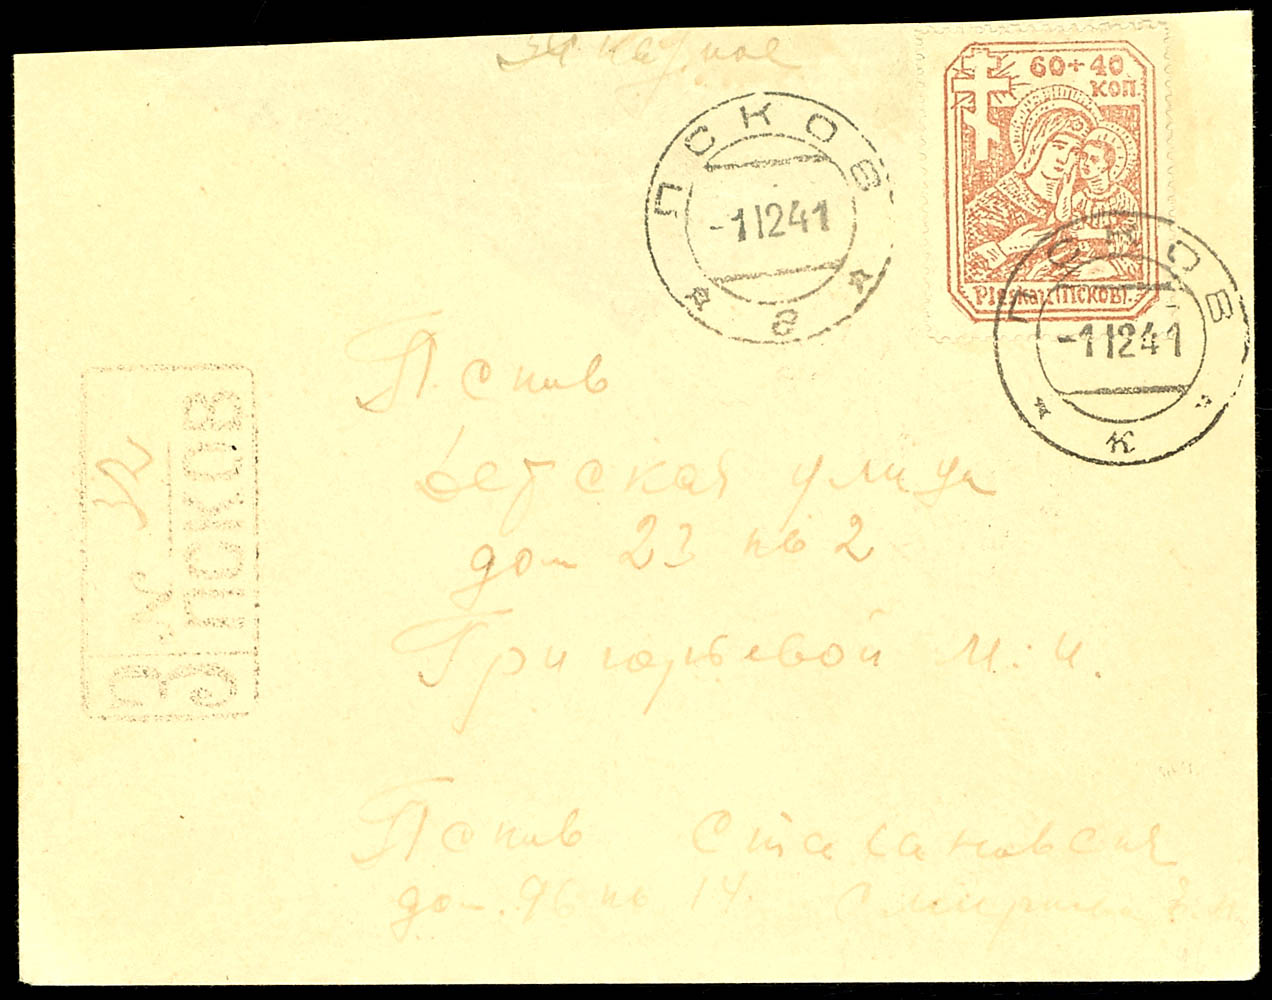 Заказное
60+40
КОП.
Pleskau (ПСКОВ).
ПСКОВ
-1 12 41
г
ПСКОВ
-1 12 41
к
З
ПСКОВ
№ 32
Псков
Детская улица
дом 23 кв 2
Григорьевой М. И.
Псков Стахановская
дом. 96 кв 14. Смирнова